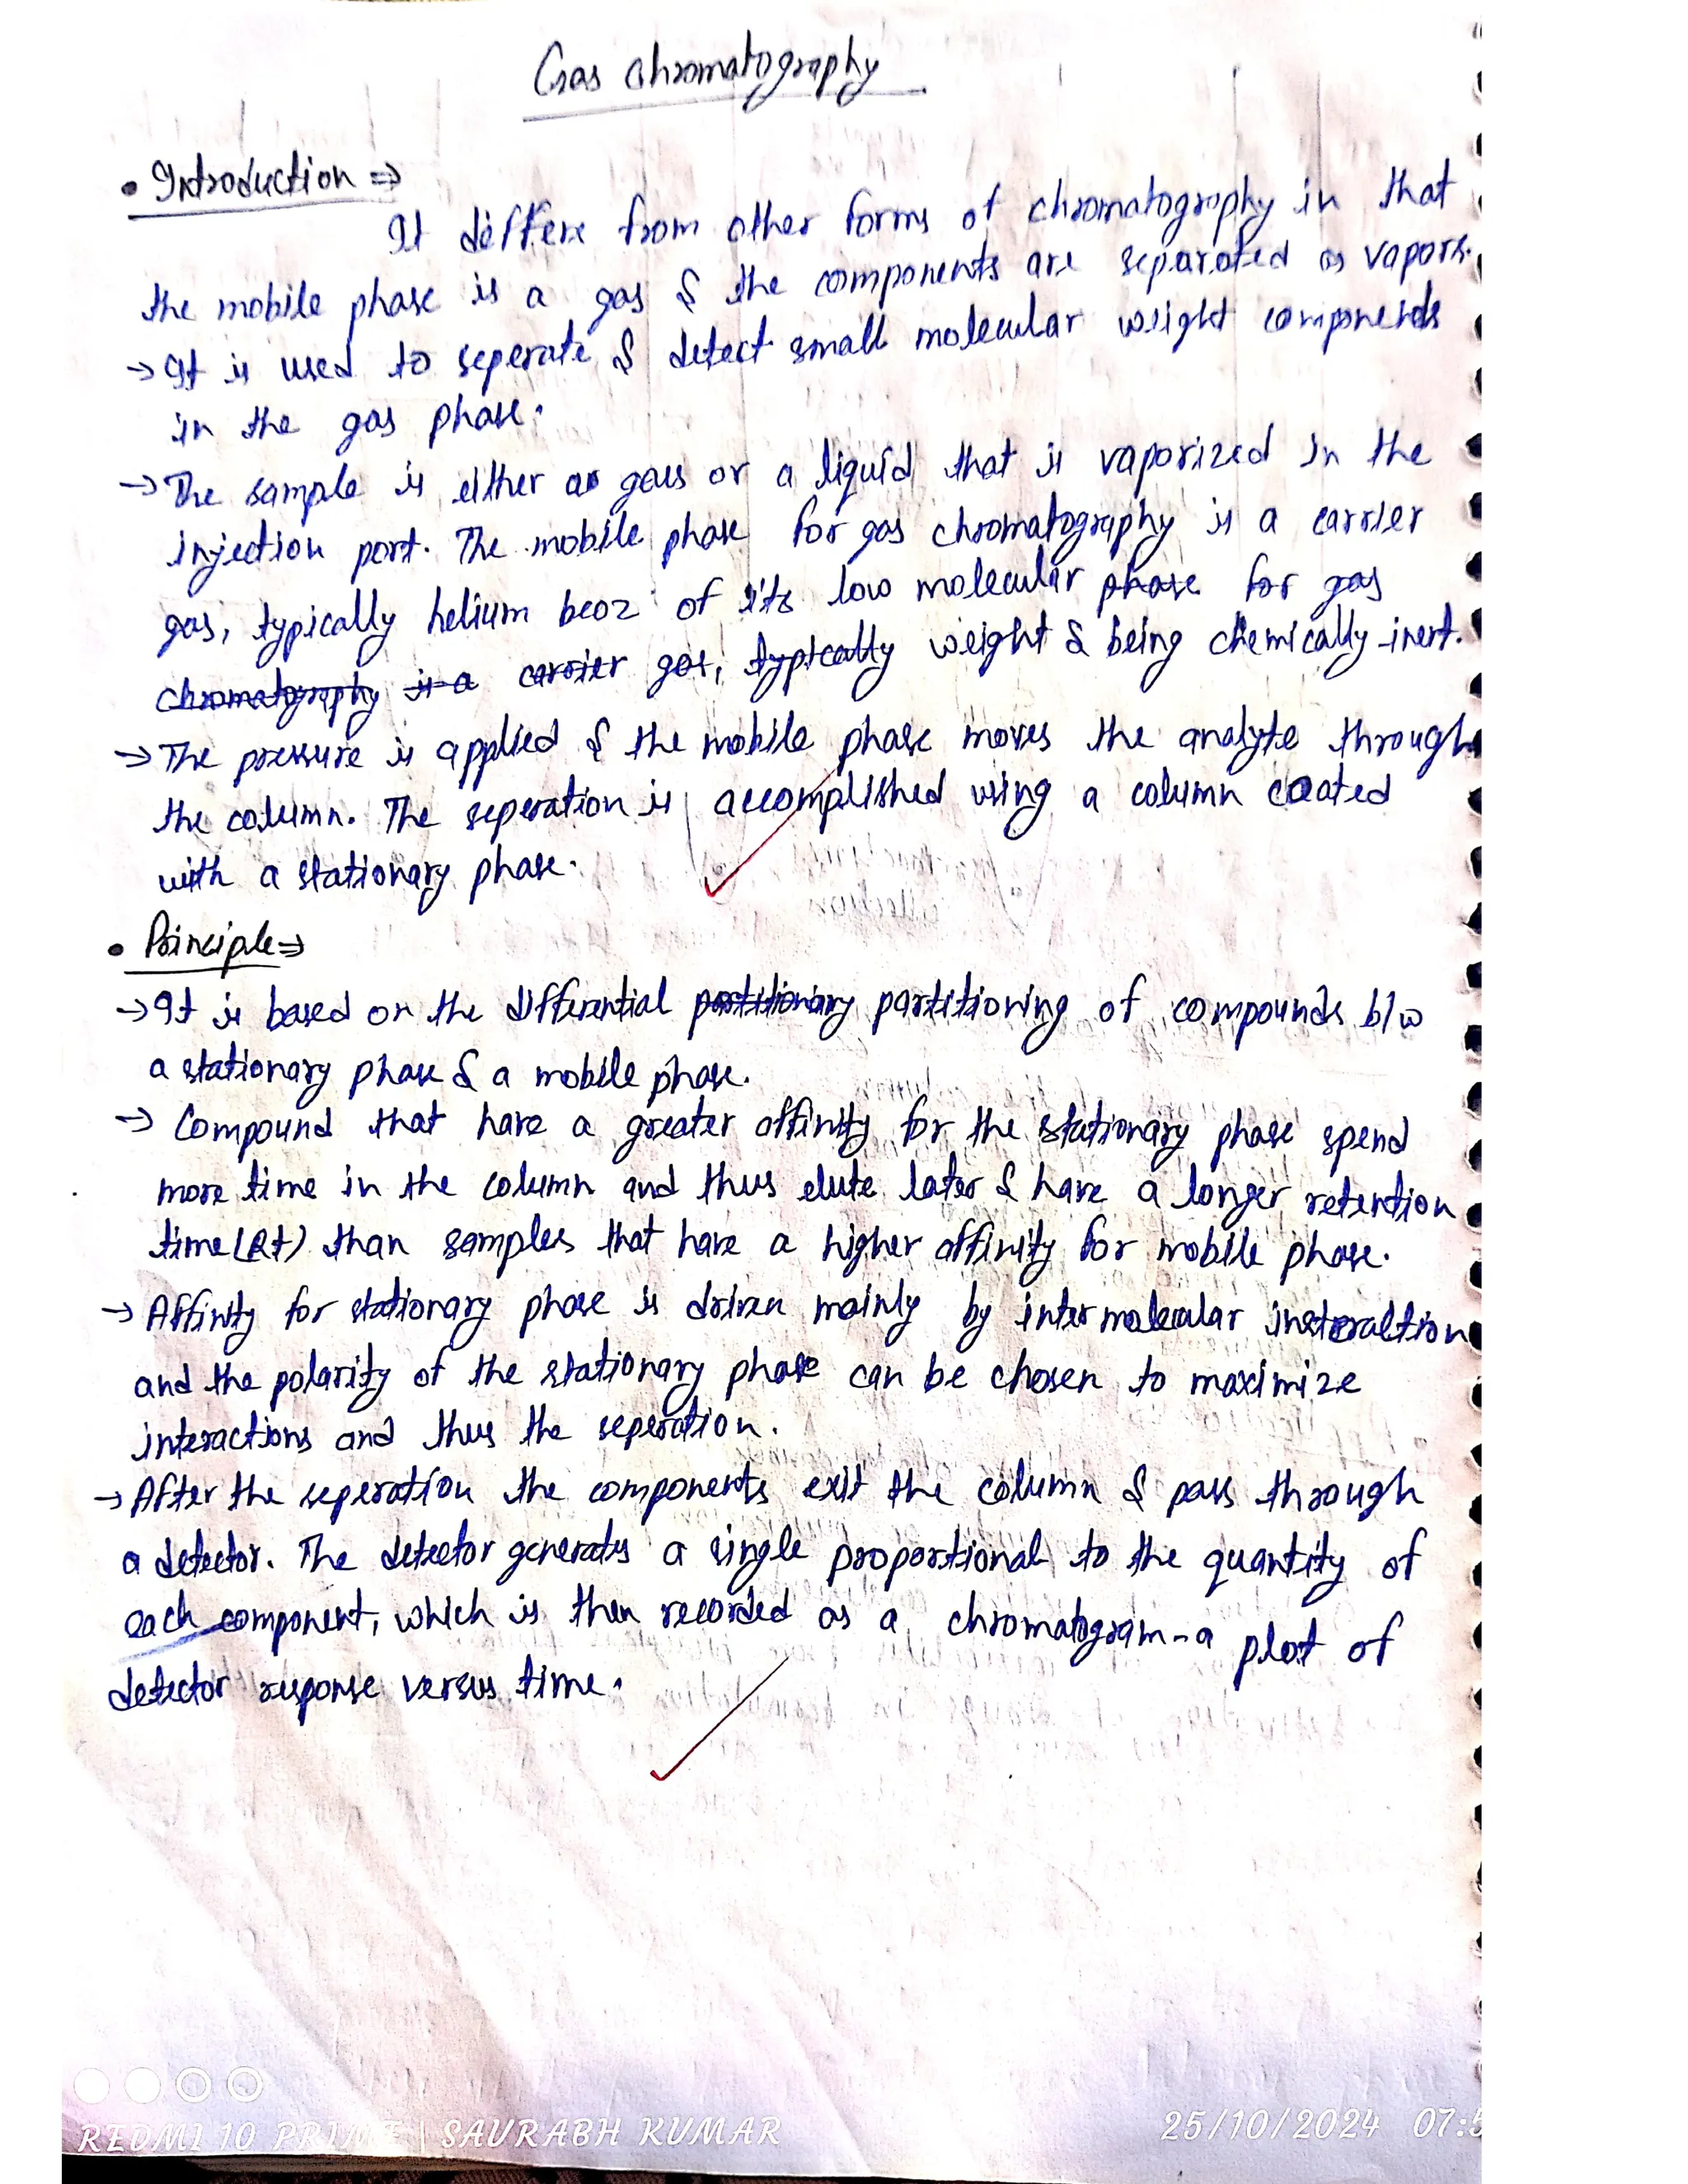 Gas chromatography
• Introduction ⇒
It differe from other forms of chromatography in that
the mobile phase is a gas & the components are separated as vapors.
→ It is used to seperate & detect small molecular weight components
in the gas phase.
→ The sample is either a gas or a liquid that is vaporized in the
injection port. The mobile phase for gas chromatography is a carrier
gas, typically helium becoz of its low molecular phase for gas
chromatography is a carrier gas, typically weight & being chemically inert.
→ The pressure is applied & the mobile phase moves the analyte through
the column. The seperation is accomplished using a column coated
with a stationary phase.
• Principle ⇒
→ It is based on the differential partitionary partitioning of compounds b/w
a stationary phase & a mobile phase.
→ Compound that have a greater affinity for the stationary phase spend
more time in the column and thus elute later & have a longer retention
time (Rt) than samples that have a higher affinity for mobile phase.
→ Affinity for stationary phase is driven mainly by intermolecular interaction
and the polarity of the stationary phase can be chosen to maximize
interactions and thus the seperation.
→ After the seperation the components exit the column & pass through
a detector. The detector generates a single proportional to the quantity of
each component, which is then recorded as a chromatogram - a plot of
detector response versus time.
REDMI 10 PRIME | SAURABH KUMAR
25/10/2024 07:5